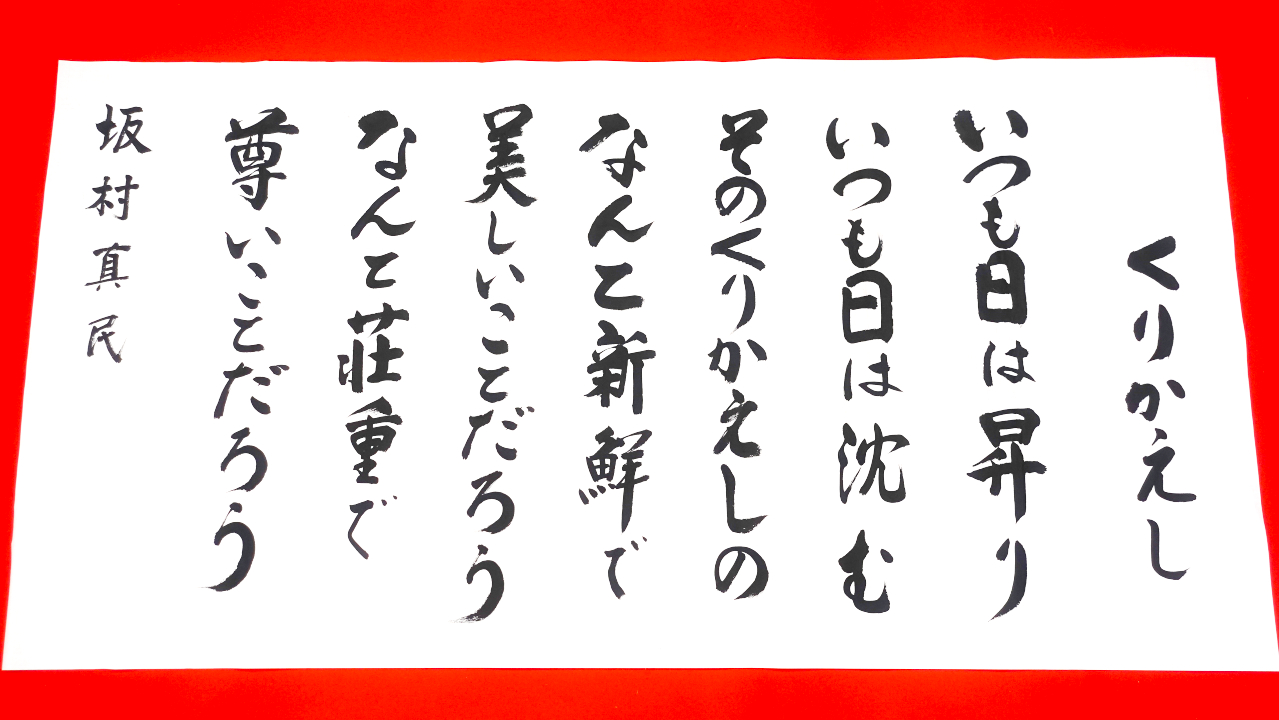 くりかえし
いつも日は昇り
いつも日は沈む
そのくりかえしの
なんと新鮮で
美しいことだろう
なんと荘重で
尊いことだろう
坂村真民